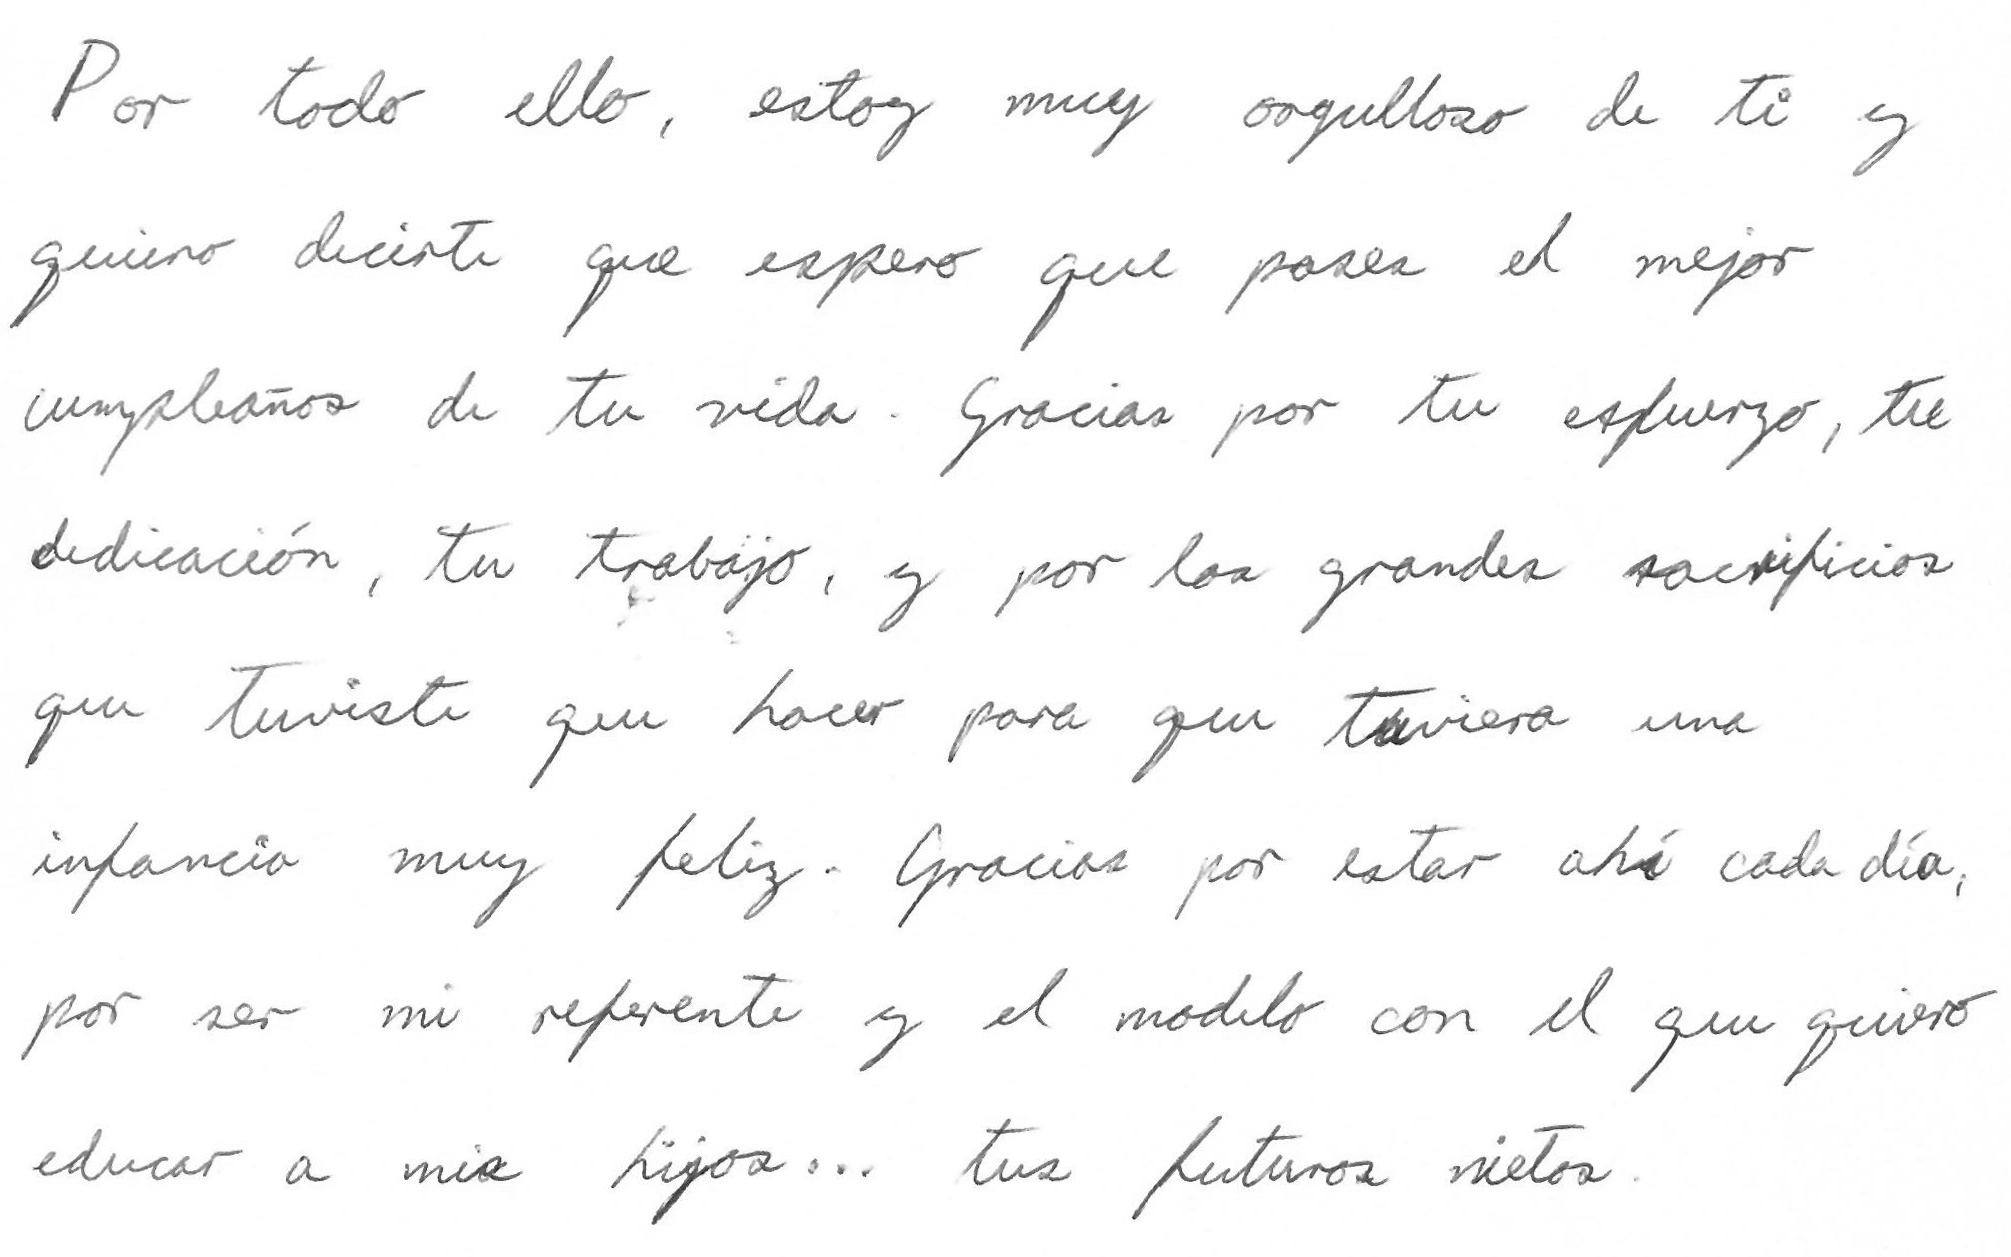 Por todo ello, estoy muy orgulloso de ti y
quiero decirte que espero que pases el mejor
cumpleaños de tu vida. Gracias por tu esfuerzo, tu
dedicación, tu trabajo, y por los grandes sacrificios
que tuviste que hacer para que tuviera una
infancia muy feliz. Gracias por estar ahí cada día,
por ser mi referente y el modelo con el que quiero
educar a mis hijos... tus futuros nietos.